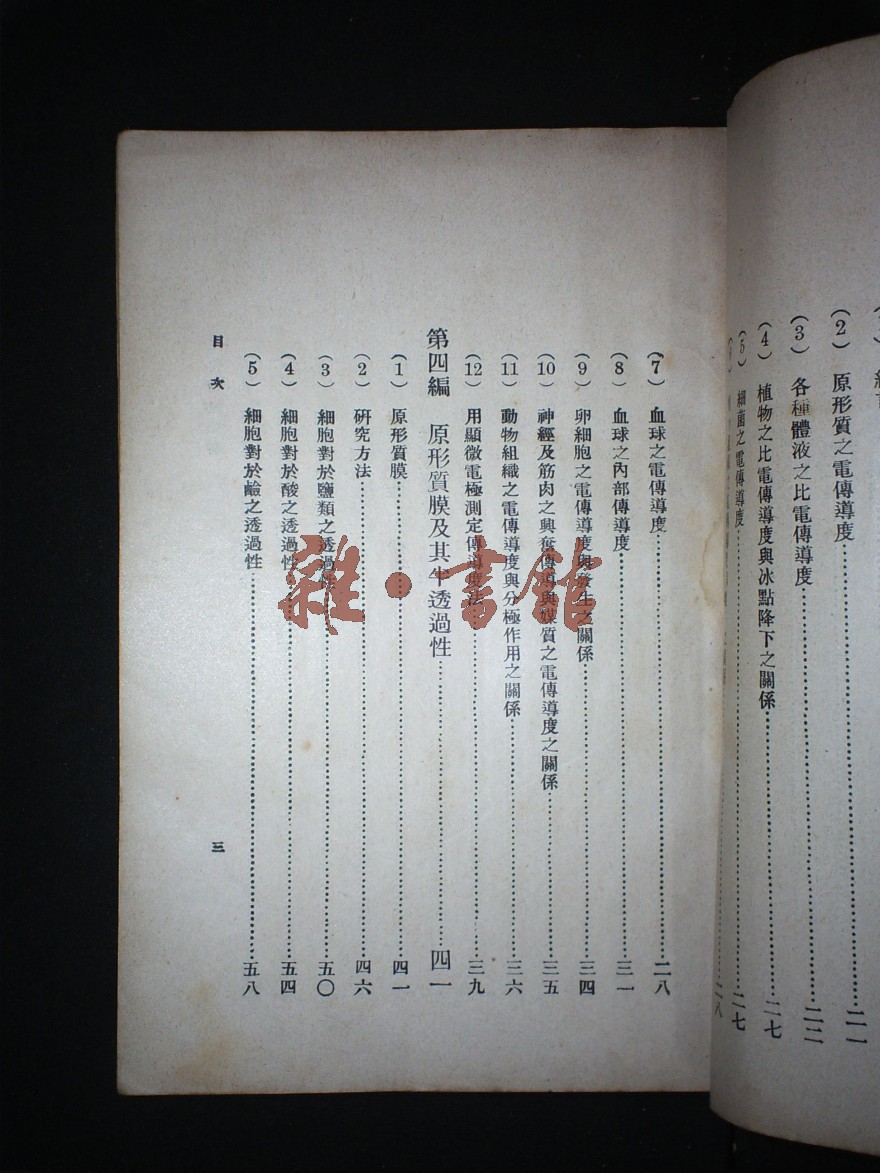 (2) 原形質之電傳導度……二一
(3) 各種體液之比電傳導度……二二
(4) 植物之比電傳導度與冰點降下之關係……二七
(5) 細菌之電傳導度……二七
二八
(7) 血球之電傳導度……二八
(8) 血球之內部傳導度……三一
(9) 卵細胞之電傳導度與發生之關係……三四
(10) 神經及筋肉之興奮傳導與媒質之電傳導度之關係……三五
(11) 動物組織之電傳導度與分極作用之關係……三六
(12) 用顯微電極測定傳導度法……三九
第四編 原形質膜及其半透過性……四一
(1) 原形質膜……四一
(2) 研究方法……四六
(3) 細胞對於鹽類之透過性……五〇
(4) 細胞對於酸之透過性……五四
(5) 細胞對於鹼之透過性……五八
目次
三
雜·書館